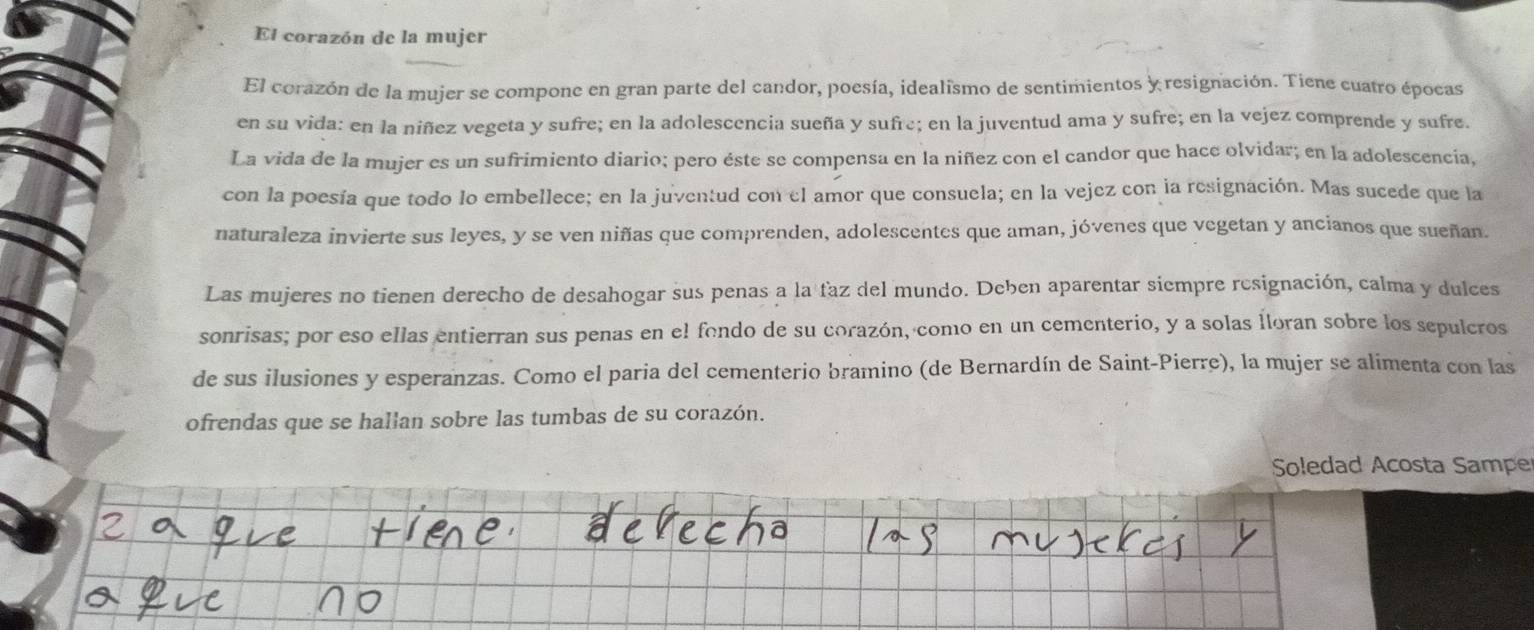 El corazón de la mujer
El corazón de la mujer se compone en gran parte del candor, poesía, idealismo de sentimientos y resignación. Tiene cuatro épocas
en su vida: en la niñez vegeta y sufre; en la adolescencia sueña y sufre; en la juventud ama y sufre; en la vejez comprende y sufre.
La vida de la mujer es un sufrimiento diario; pero éste se compensa en la niñez con el candor que hace olvidar; en la adolescencia,
con la poesía que todo lo embellece; en la juventud con el amor que consuela; en la vejez con la resignación. Mas sucede que la
naturaleza invierte sus leyes, y se ven niñas que comprenden, adolescentes que aman, jóvenes que vegetan y ancianos que sueñan.
Las mujeres no tienen derecho de desahogar sus penas a la faz del mundo. Deben aparentar siempre resignación, calma y dulces
sonrisas; por eso ellas entierran sus penas en el fondo de su corazón, como en un cementerio, y a solas lloran sobre los sepulcros
de sus ilusiones y esperanzas. Como el paria del cementerio bramino (de Bernardín de Saint-Pierre), la mujer se alimenta con las
ofrendas que se hallan sobre las tumbas de su corazón.
Soledad Acosta Samper
2 a que tiene. derecho las mujeres y
a que no